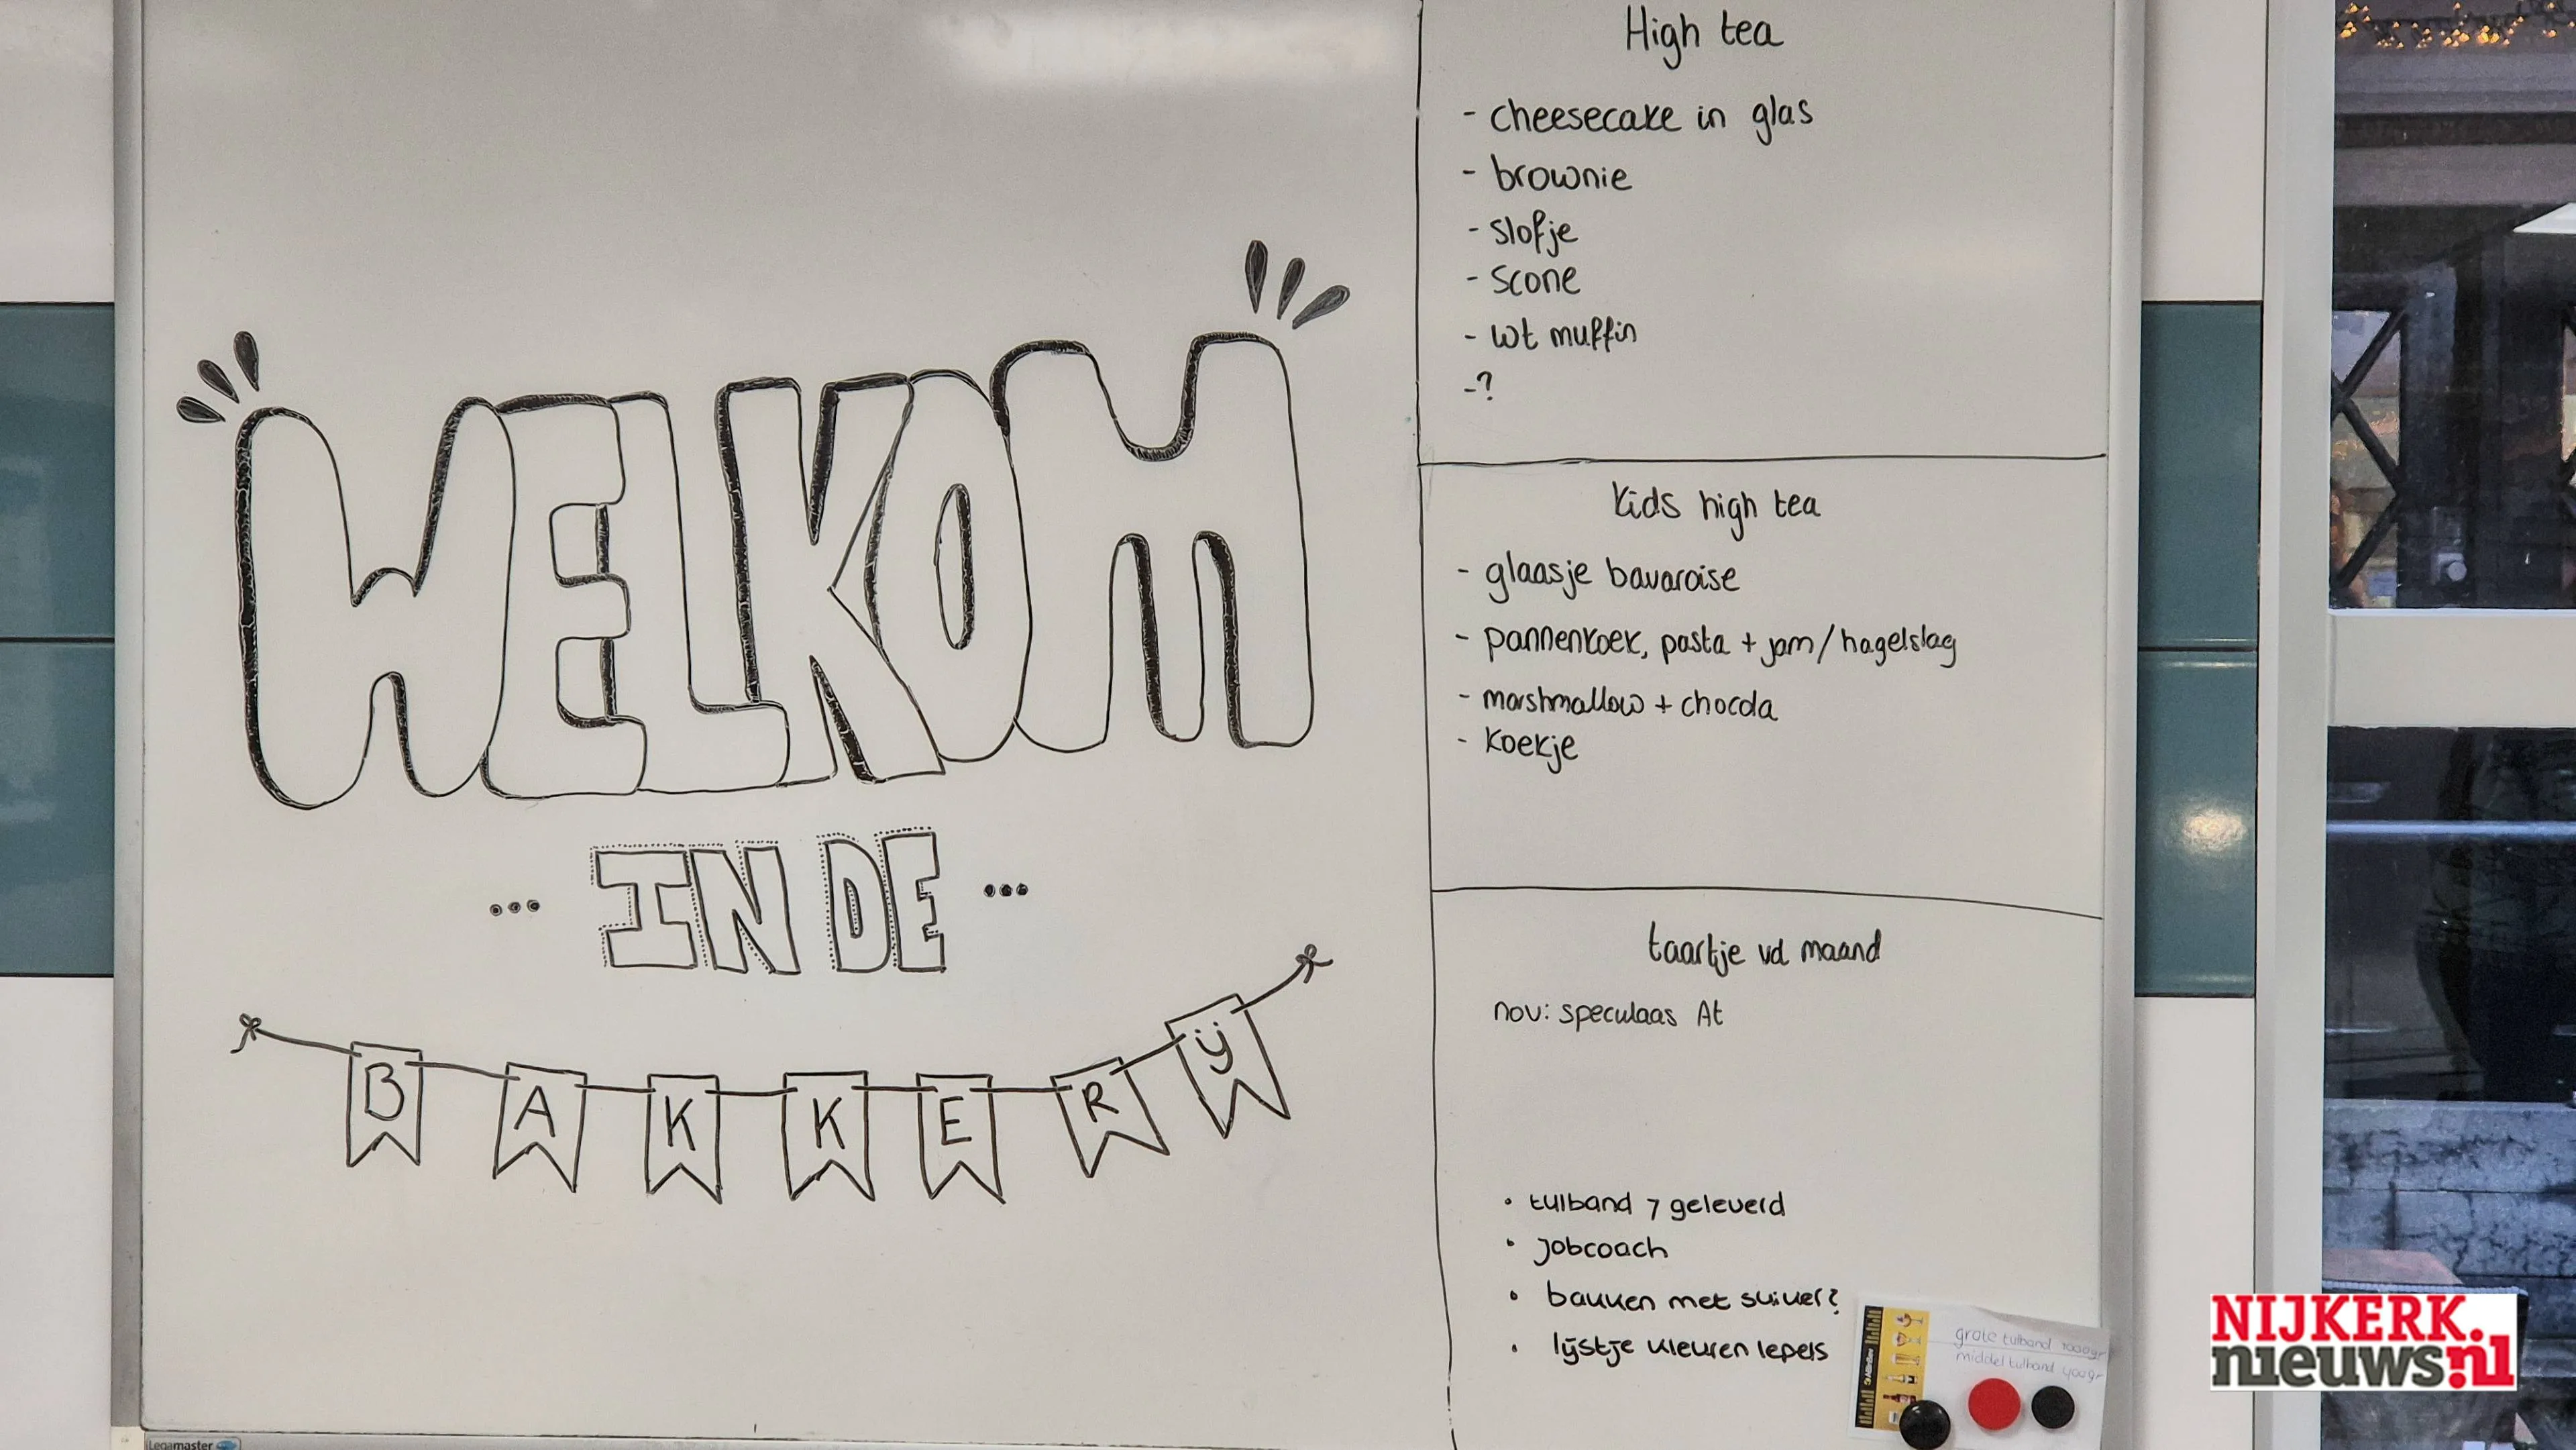 WELKOM
... IN DE ...
BAKKERIJ
High tea
- cheesecake in glas
- brownie
- slofje
- scone
- wt muffin
-?
Kids high tea
- glaasje bavaroise
- pannenkoek, pasta + jam/hagelslag
- marshmallow + chocola
- koekje
taartje vd maand
nov: speculaas At
• tulband 7 geleverd
• jobcoach
• bakken met suiker?
• lijstje kleuren lepels
grote tulband 1000gr
middel tulband 400gr
Legamaster
NIJKERK.
nieuws.nl